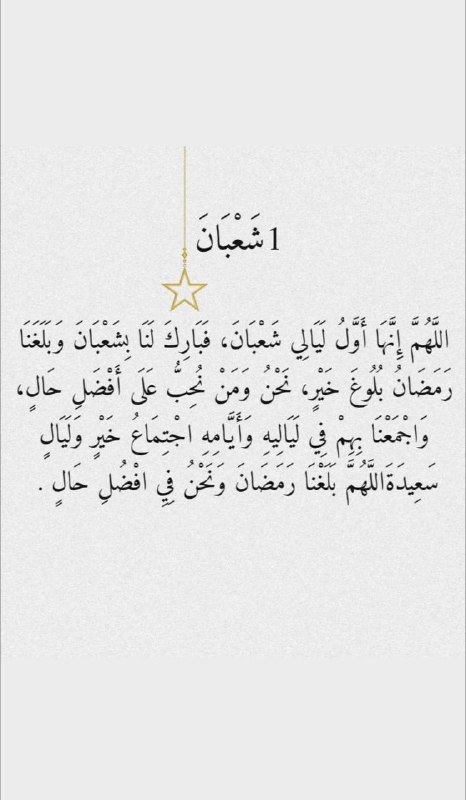 1 شَعْبَانَ
اللَّهُمَّ إِنَّهَا أَوَّلُ لَيَالِي شَعْبَانَ، فَبَارِكَ لَنَا بِشَعْبَانَ وَبَلَغَنَا
رَمَضَانُ بُلُوغَ خَيْرٍ، نَحْنُ وَمَنْ نُحِبُّ عَلَى أَفْضَلِ حَالٍ،
وَاجْمَعْنَا بِهِمْ فِي لَيَالِيهِ وَأَيَّامِهِ اجْتِمَاعُ خَيْرٍ وَلَيَالٍ
سَعِيدَةَاللَّهُمَّ بَلَغْنَا رَمَضَانَ وَنَحْنُ فِي افْضُلِ حَالٍ .